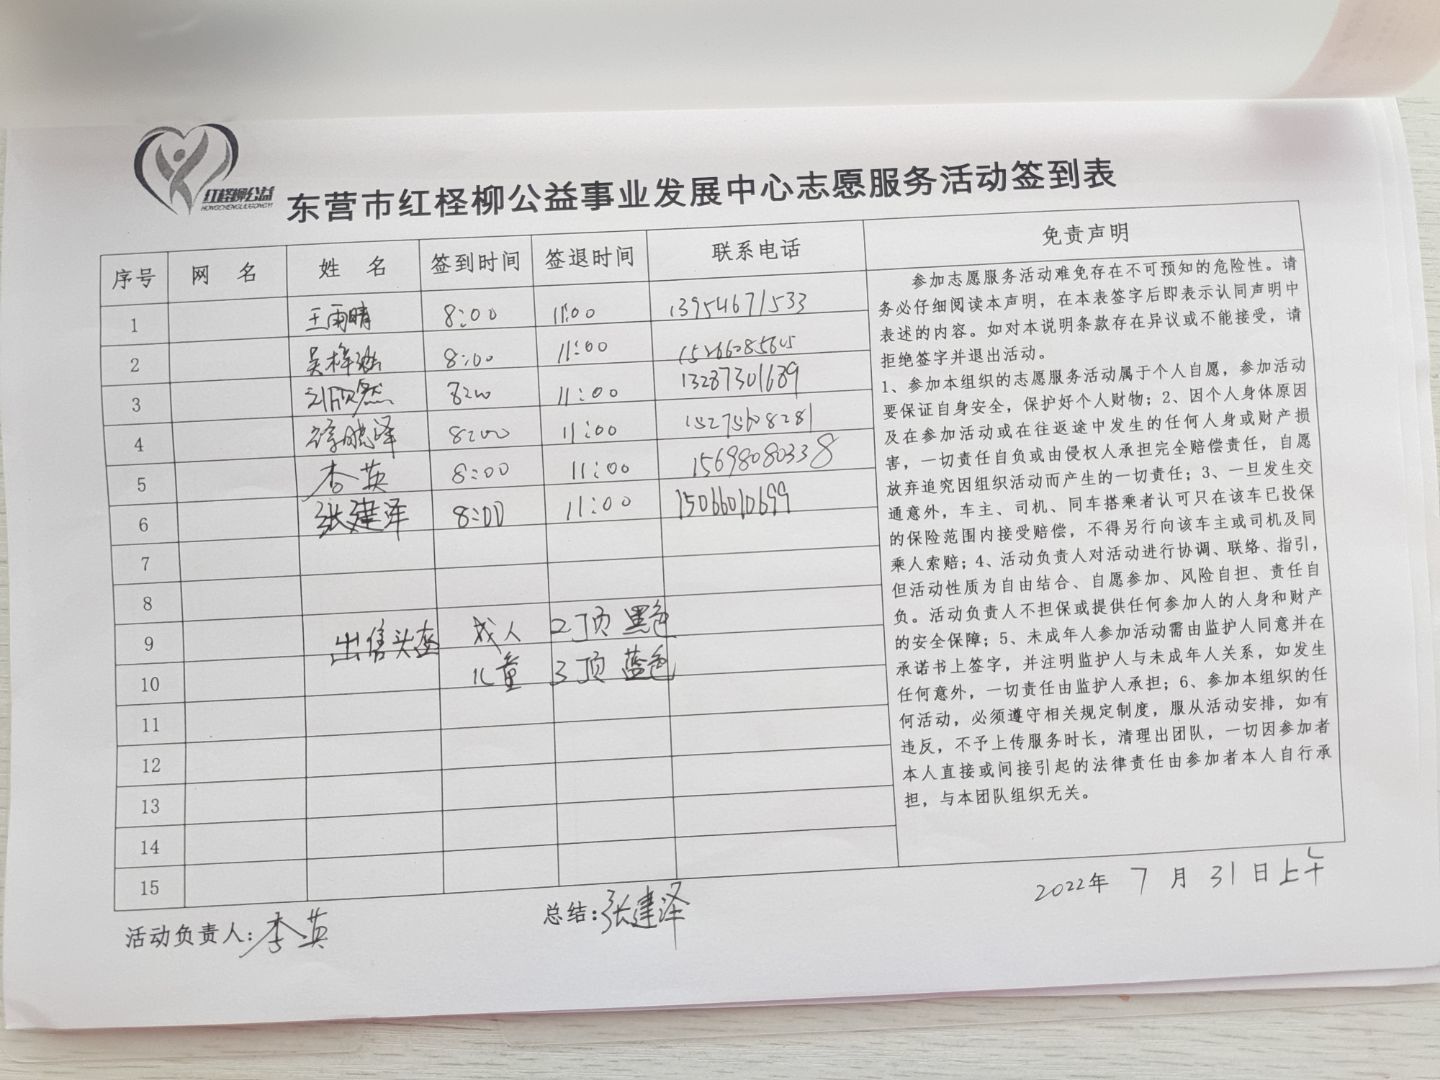 红柽柳公益
HONGCHENGLIUGONGYI
东营市红柽柳公益事业发展中心志愿服务活动签到表
序号 网 名 姓 名 签到时间 签退时间 联系电话 免责声明
1 王雨晴 8:00 11:00 13954671533
2 吴梓涵 8:00 11:00
3 刘欣然 8:00 11:00 13287301689
4 徐晓泽 8:00 11:00 15275608281
5 李英 8:00 11:00 15698080338
6 张建泽 8:00 11:00 15066010699
7
8
9 出售头盔 成人 2顶 黑色
10 儿童 3顶 蓝色
11
12
13
14
15
参加志愿服务活动难免存在不可预知的危险性。请
务必仔细阅读本声明，在本表签字后即表示认同声明中
表述的内容。如对本说明条款存在异议或不能接受，请
拒绝签字并退出活动。
1、参加本组织的志愿服务活动属于个人自愿，参加活动
要保证自身安全，保护好个人财物；2、因个人身体原因
及在参加活动或在往返途中发生的任何人身或财产损
害，一切责任自负或由侵权人承担完全赔偿责任，自愿
放弃追究因组织活动而产生的一切责任；3、一旦发生交
通意外，车主、司机、同车搭乘者认可只在该车已投保
的保险范围内接受赔偿，不得另行向该车主或司机及同
乘人索赔；4、活动负责人对活动进行协调、联络、指引，
但活动性质为自由结合、自愿参加、风险自担、责任自
负。活动负责人不担保或提供任何参加人的人身和财产
的安全保障；5、未成年人参加活动需由监护人同意并在
承诺书上签字，并注明监护人与未成年人关系，如发生
任何意外，一切责任由监护人承担；6、参加本组织的任
何活动，必须遵守相关规定制度，服从活动安排，如有
违反，不予上传服务时长，清理出团队，一切因参加者
本人直接或间接引起的法律责任由参加者本人自行承
担，与本团队组织无关。
2022年 7 月 31 日上午
活动负责人:李英 总结:张建泽